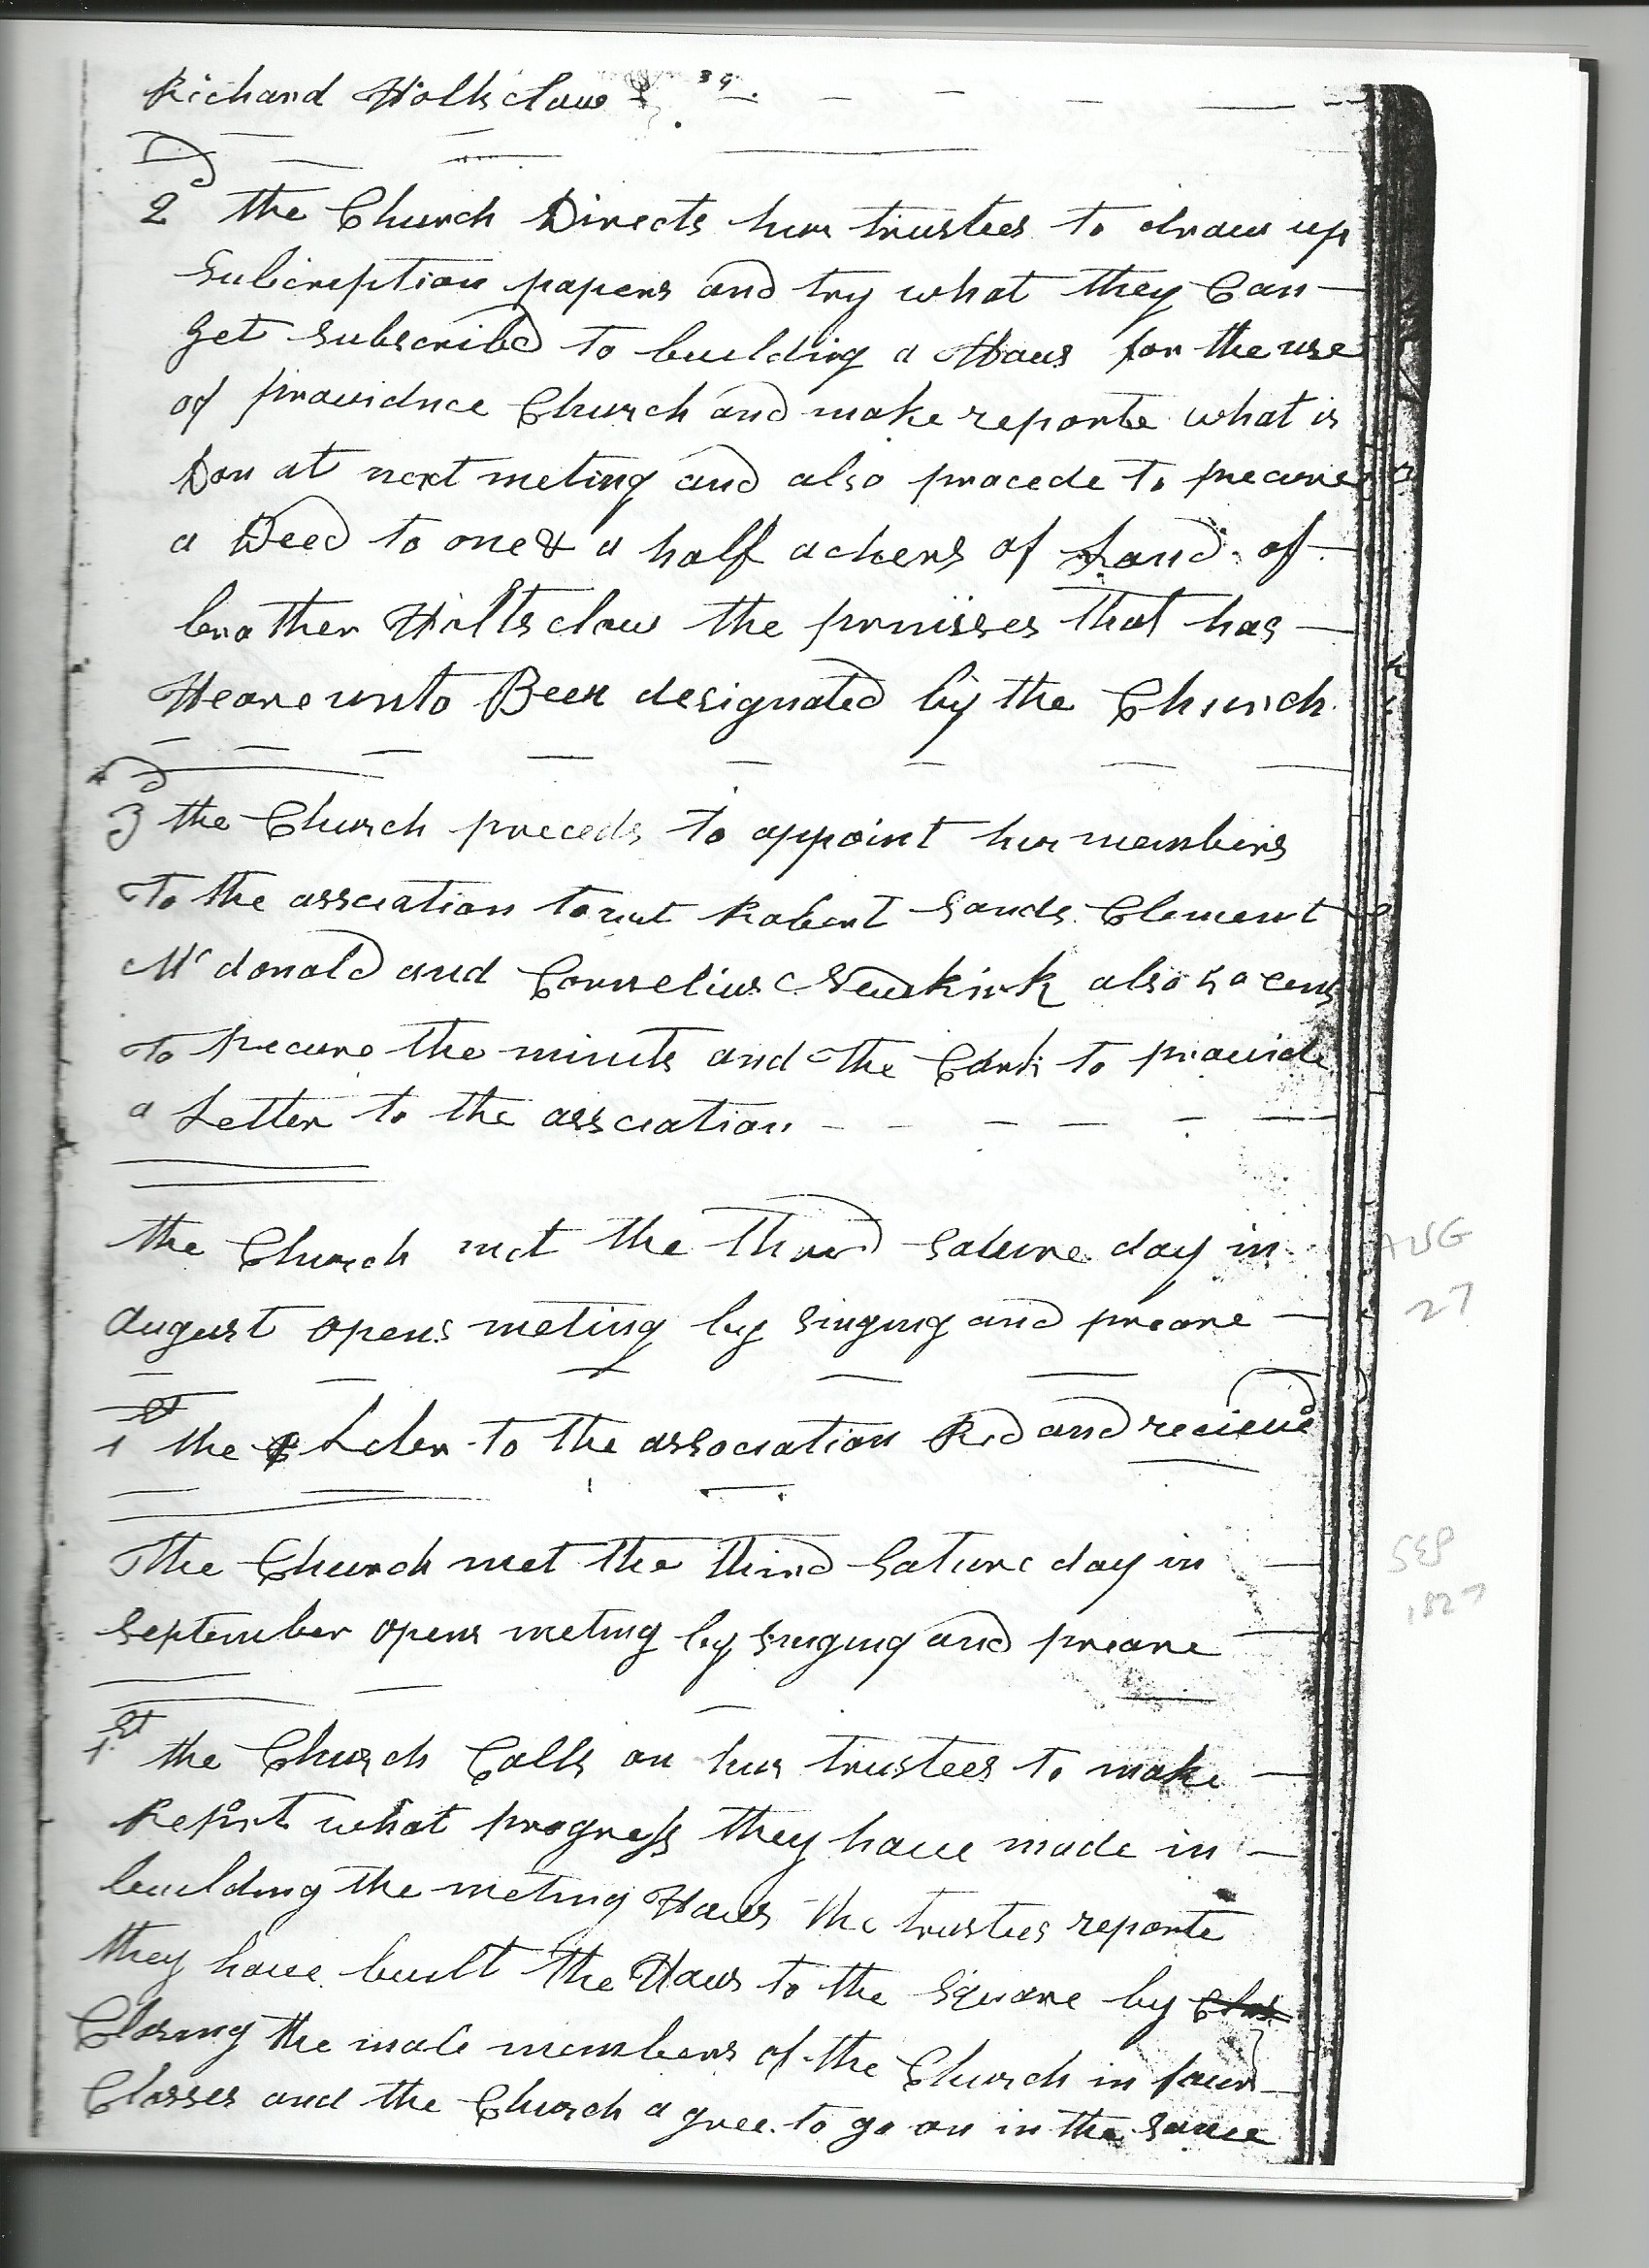 Richard Holtsclaw 39.
2d the Church Directs hur trustees to draw up
Subcreption papers and try what they Can
Get Subscribd to building a Hous for the use
of providnce Church and make reporte what is
Don at next meting and also procede to precure
a Deed to one & a half ackers of Land of
brother Holtsclaw the primisses that has
Heareunto Been designated by the Church
3d the Church preceds to appoint hur members
To the assciation towit Robert Sands Clement
Mc donald and Cornelius Newkirk also
To precure the minuts and the Clark to provide
a Letter to the assciation
the Church met the Third Sature day in
August opens meting by Singing and preare
AUG
27
1st the Leter to the association Red and recievd
The Church met the third Sature day in
September opens meting by Singing and preare
SEP
1827
1st the Church Calls on hur trustees to make
Report what progress they have made in
building the meting Hous the trustees reporte
they have built the Hous to the Square by Clas
Clasing the male members of the Church in four
Classes and the Church agree to go on in the same